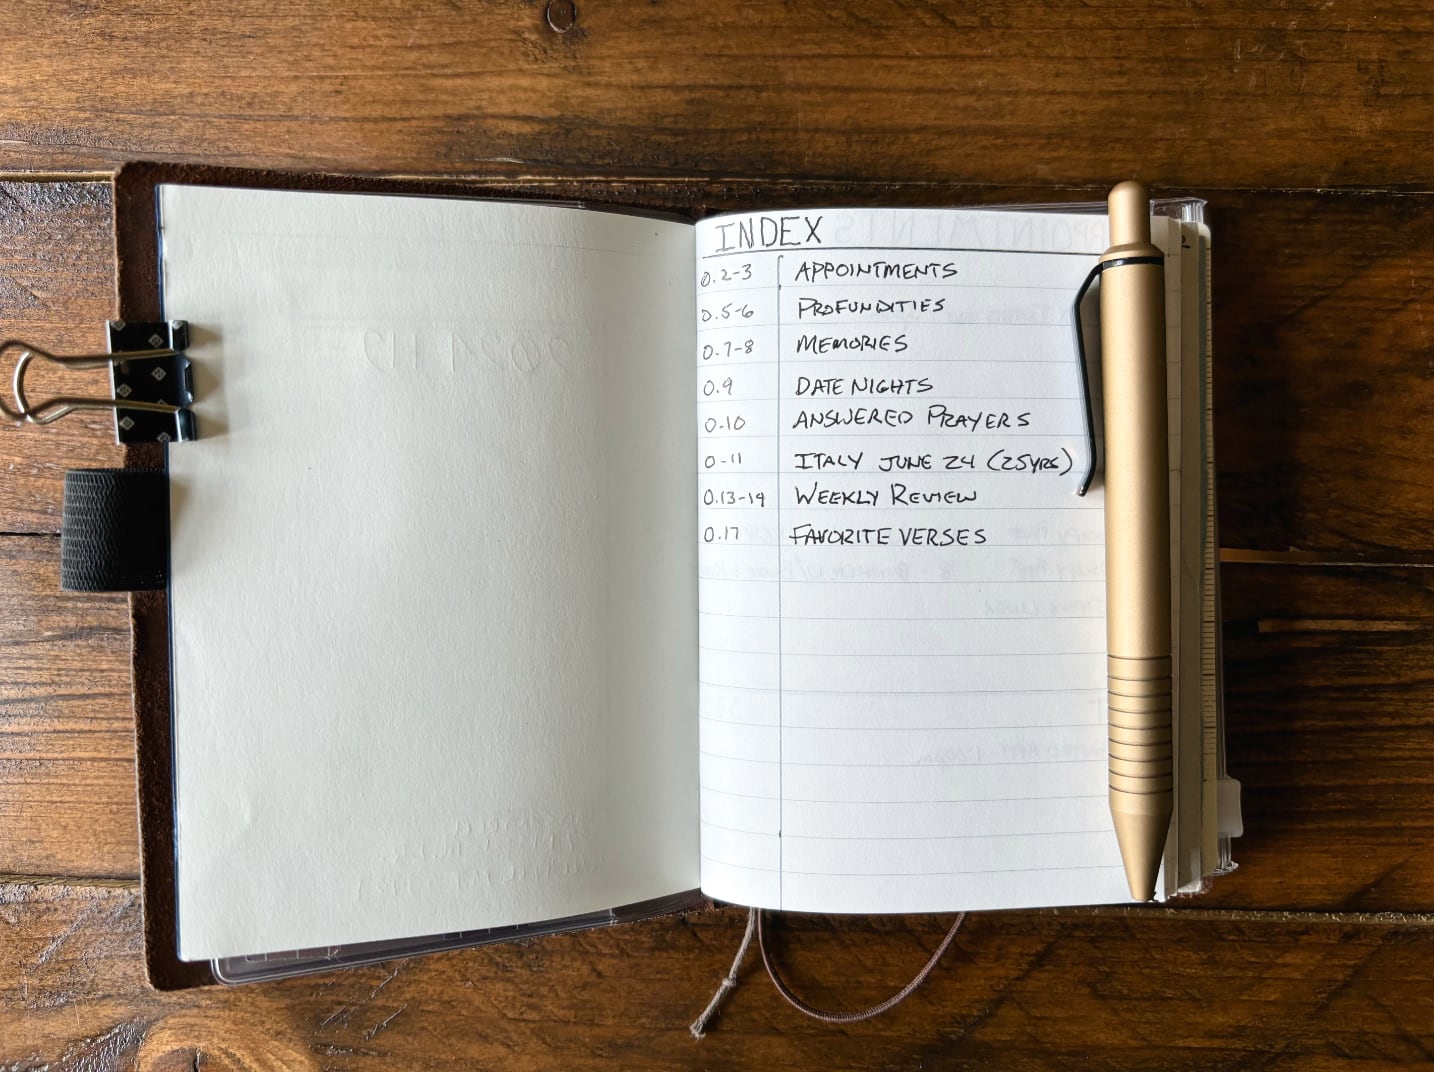 INDEX
0.2-3 APPOINTMENTS
0.5-6 PROFUNDITIES
0.7-8 MEMORIES
0.9 DATE NIGHTS
0.10 ANSWERED PRAYERS
0-11 ITALY JUNE 24 (25YRS)
0.13-14 WEEKLY REVIEW
0.17 FAVORITE VERSES